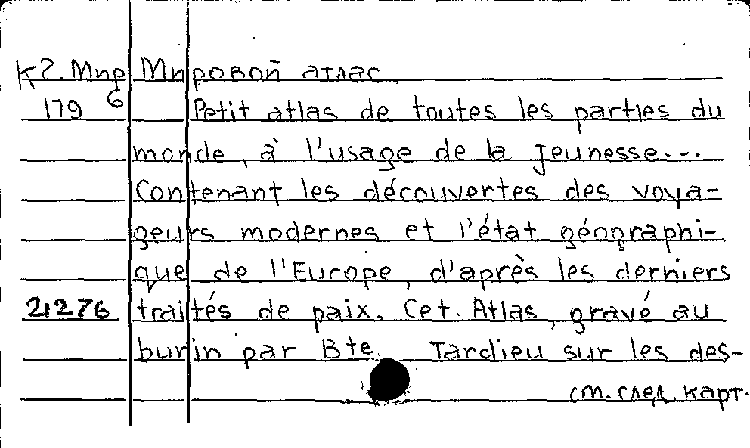 К2. Мир Мировой атлас
179 6 Petit atlas de toutes les parties du
monde, à l'usage de la jeunesse...
Contenant les découvertes des voya-
geurs modernes et l'état géographi-
que de l'Europe, d'après les derniers
21276 traités de paix. Cet. Atlas, gravé au
burin par Bte. Tardieu sur les des-
см. след. карт.